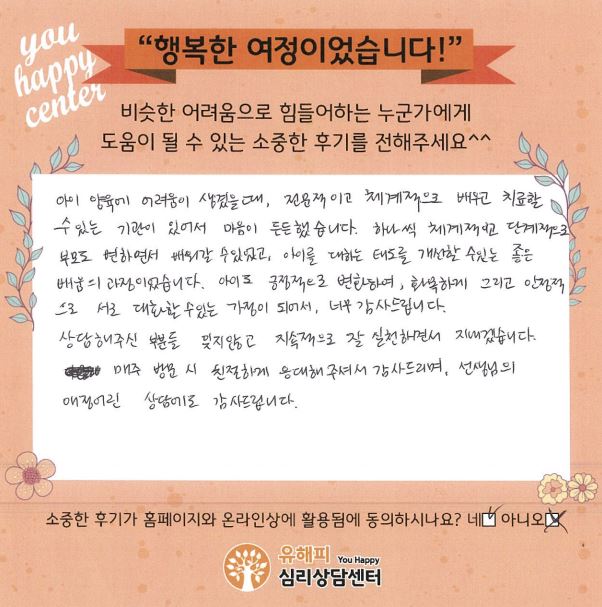 you
happy
center
“행복한 여정이었습니다!”
비슷한 어려움으로 힘들어하는 누군가에게
도움이 될 수 있는 소중한 후기를 전해주세요^^
아이 양육에 어려움이 생겼을때, 전용적이고 체계적으로 배우고 치료할
수 있는 기관이 있어서 마음이 든든했습니다. 하나씩 체계적이고 단계적으로
부모도 변하면서 배워갈 수있었고, 아이를 대하는 태도를 개선할 수있는 좋은
배움의 과정이었습니다. 아이도 긍정적으로 변화하여, 화목하게 그리고 안정적
으로 서로 대화할 수있는 가정이 되어서, 너무 감사드립니다.
상담해주신 부분들 잊지않고 지속적으로 잘 실천하면서 지내겠습니다.
매주 방문 시 친절하게 응대해주셔서 감사드리며, 선생님의
애정어린 상담에도 감사드립니다.
소중한 후기가 홈페이지와 온라인상에 활용됨에 동의하시나요? 네 아니오
유해피 You Happy
심리상담센터